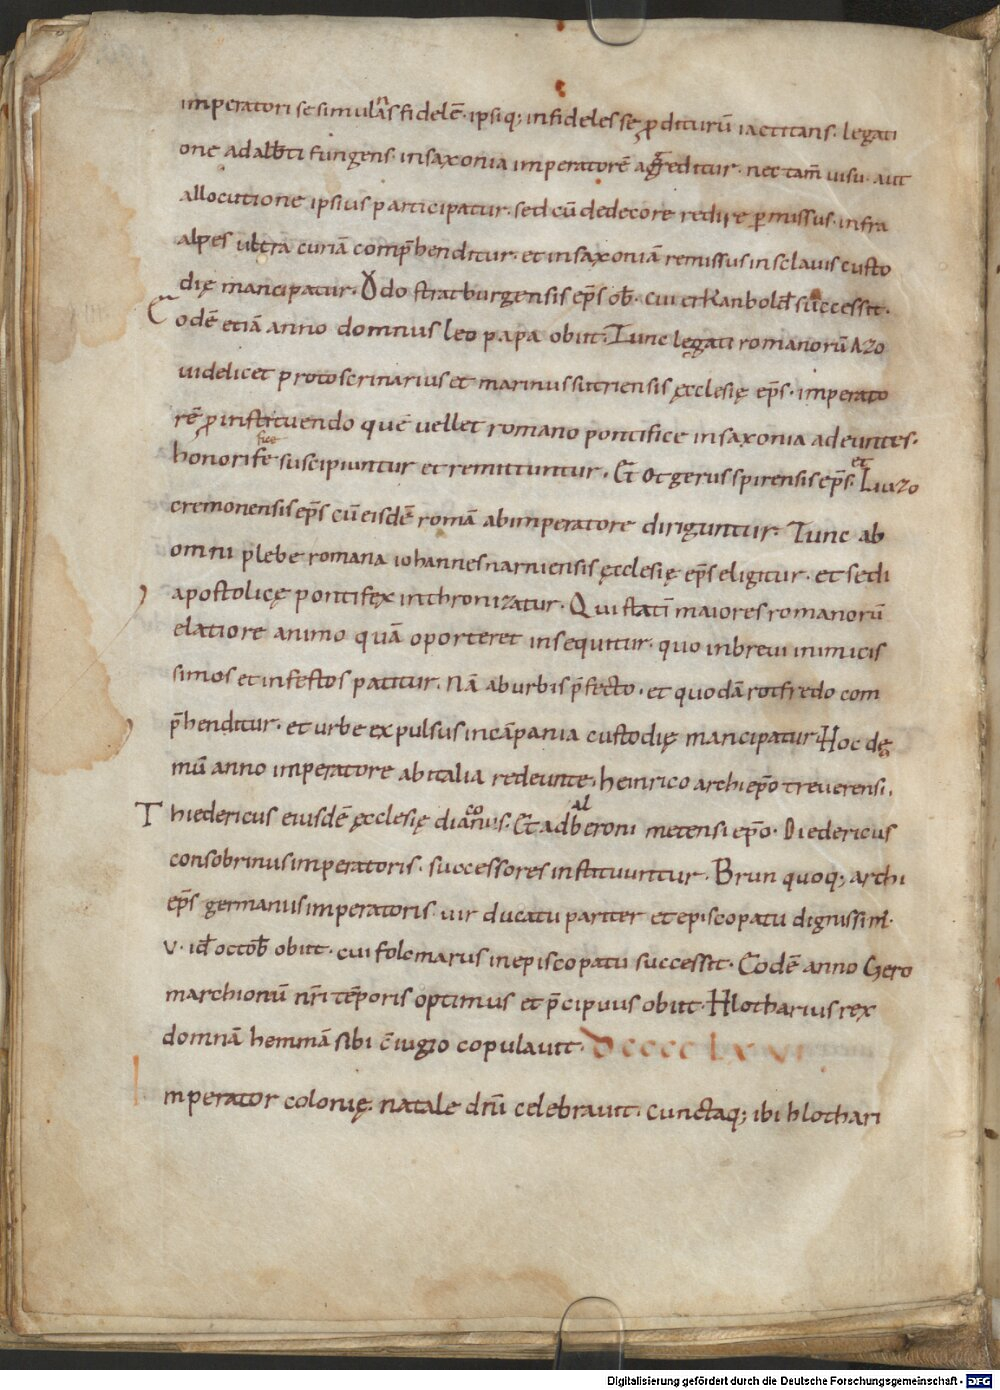 imperatori se simulaⁿs fidelē· ipsiq; infideles se ꝓditurū iactitans· legati
one adalbti fungens· in saxonia imperatorē aggreditur· nec tam̄ uisu· aut
allocutione ipsius participatur· sed cū dedecore redire ꝑmissus· infra
alpes ultra curiā comp̄henditur· et in saxoniā remissus in sclauis custo
dię mancipatur· Vdo stratburgensis ep̄s ob̄· cui erkanbold successit·
Eodē etiā anno domnus leo papa obiit· Tunc legati romanorū Azo
uidelicet protoscrinarius et marinus sutriensis ęcclesię ep̄s· imperato
rē ꝓ instituendo quē uellet romano pontifice in saxonia adeuntes·
honorifice suscipiuntur et remittuntur· Et otgerus spirensis ep̄s· et Liuzo
cremonensis ep̄s cū eisdē romā ab imperatore diriguntur· Tunc ab
omni plebe romana iohannes narniensis ęcclesię ep̄s eligitur· et sedi
apostolicę pontifex inthronizatur· Qui statī maiores romanorū
elatiore animo quā oporteret insequitur· quo in breui inimicis
simos et infestos patitur· Nā ab urbis p̄fecto· et quodā rotfredo com
p̄henditur· et urbe expulsus in cāpania custodię mancipatur· Hoc dę
mū anno imperatore ab italia redeunte· heinrico archiep̄o treuerensi·
Thiedericus eiusdē ęcclesię diaconus· Et adalberoni metensi ep̄o· Diedericus
consobrinus imperatoris· successores instituuntur· Brun quoq; archi
ep̄s germanus imperatoris· uir ducatu pariter et episcopatu dignissim̄·
v· id octob̄ obiit· cui folcmarus in episcopatu successit· Eodē anno Gero
marchionū nr̄i tēporis optimus et p̄cipuus obiit· Hlotharius rex
domnā hemmā sibi c̄iugio copulauit· DCCCCLXVI
Imperator colonię natale dn̄i celebrauit· cunctaq; ibi hlothari
Digitalisierung gefördert durch die Deutsche Forschungsgemeinschaft · DFG